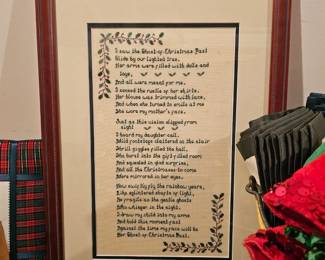 I saw the Ghost of Christmas Past
Glide by our lighted tree.
Her arms were filled with dolls and
toys,
And all were meant for me.
I sensed the rustle of her skirts.
Her blouse was trimmed with lace,
And when she turned to smile at me
She wore my mother's face.
Just as this vision slipped from
sight
I heard my daughter call.
Wild footsteps clattered on the stair
Shrill giggles filled the hall,
She burst into the gift filled room
And squealed in glad surprise,
And all the Christmases to come
Were mirrored in her eyes.
How swiftly fly the rainbow years,
Like splintered shafts of light,
As fragile as the gentle ghosts
Who whisper in the night.
I draw my child into my arms
And hold this moment fast
Against the time my face will be
Her Ghost of Christmas Past.